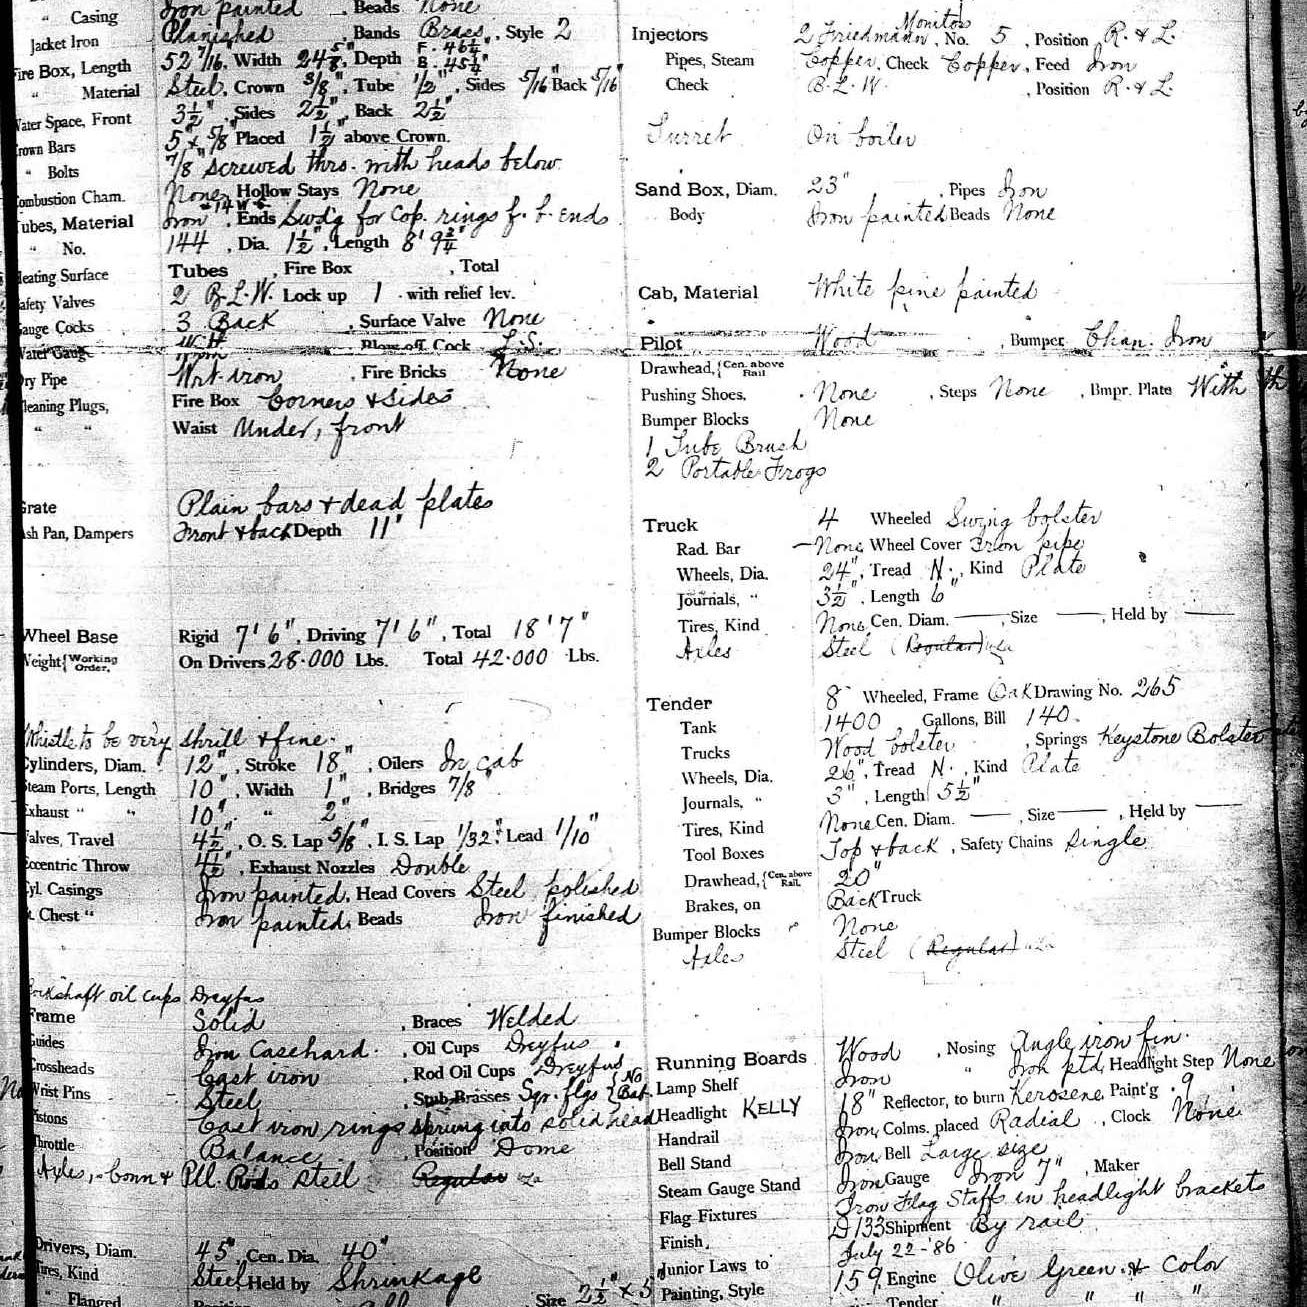 " Casing Iron painted, Beads None
Jacket Iron Planished, Bands Brass, Style 2
Fire Box, Length 52 7/16", Width 24 5/8", Depth F. 46 1/4" B. 45 1/4"
" Material Steel, Crown 3/8", Tube 1/2", Sides 5/16" Back 5/16"
Water Space, Front 3 1/2", Sides 2 1/2", Back 2 1/2"
Crown Bars 5" x 5/8" Placed 1 1/2" above Crown.
" Bolts 7/8" Screwed thro. with heads below
Combustion Cham. None, Hollow Stays None
Tubes, Material Iron 14 W.G., Ends Swd'g for Cop. rings f. b. Ends
" No. 144, Dia. 1 1/2", Length 8' 9 3/4"
Heating Surface Tubes , Fire Box , Total
Safety Valves 2 B.L.W. Lock up 1 with relief lev.
Gauge Cocks 3 Back , Surface Valve None
Water Gauge With Blow-off Cock L.S.
Dry Pipe Wrt. iron , Fire Bricks None
Cleaning Plugs, Fire Box Corners & Sides
" " Waist Under, front
Grate Plain bars & dead plates
Ash Pan, Dampers Front & back Depth 11"
Wheel Base Rigid 7' 6", Driving 7' 6", Total 18' 7"
Weight { Working Order. On Drivers 28.000 Lbs. Total 42.000 Lbs.
Whistle to be very shrill & fine.
Cylinders, Diam. 12", Stroke 18", Oilers In cab
Steam Ports, Length 10", Width 1", Bridges 7/8"
Exhaust " " 10", " 2"
Valves, Travel 4 1/2", O. S. Lap 5/8", I. S. Lap 1/32", Lead 1/10"
Eccentric Throw 4 1/2", Exhaust Nozzles Double
Cyl. Casings Iron painted, Head Covers Steel polished
Chest " Iron painted, Beads Iron finished
Rockshaft oil cups Dreyfus
Frame Solid , Braces Welded
Guides Iron Casehard. , Oil Cups Dreyfus
Crossheads Cast iron , Rod Oil Cups Dreyfus
Wrist Pins Steel , Stub Brasses Sqr. flgs { No Bab.
Pistons Cast iron rings sprung into solid head
Throttle Balance , Position Dome
Axles, Conn & Pll. Rods Steel Regular
Drivers, Diam. 45", Cen. Dia. 40"
Tires, Kind Steel, Held by Shrinkage
" Flanged Position All , Size 2 1/2" x 5"
Injectors 2 Friedmann Monitor, No. 5 , Position R. & L.
Pipes, Steam Copper, Check Copper, Feed Iron
Check B.L.W. , Position R. & L.
Turret On boiler
Sand Box, Diam. 23" , Pipes Iron
Body Iron painted, Beads None
Cab, Material White pine painted
Pilot Wood , Bumper Chan. Iron
Drawhead, { Cen. above Rail
Pushing Shoes, None , Steps None , Bmpr. Plate With
Bumper Blocks None
1 Tube Brush
2 Portable Frogs
Truck 4 Wheeled Swing bolster
Rad. Bar None, Wheel Cover Iron pipe
Wheels, Dia. 24", Tread N., Kind Plate
Journals, " 3 1/2", Length 6"
Tires, Kind None, Cen. Diam. — , Size — , Held by —
Axles Steel (Regular)
Tender 8 Wheeled, Frame Oak Drawing No. 265
Tank 1400 Gallons, Bill 140
Trucks Wood bolster , Springs Keystone Bolster
Wheels, Dia. 26", Tread N., Kind Plate
Journals, " 3", Length 5 1/2"
Tires, Kind None Cen. Diam. — , Size — , Held by —
Tool Boxes Top & back , Safety Chains Single
Drawhead, { Cen. above Rail. 20"
Brakes, on Back Truck
Bumper Blocks None
Axles Steel (Regular)
Running Boards Wood , Nosing Angle iron fin.
Lamp Shelf Iron " Iron ptd, Headlight Step None
Headlight KELLY 18" Reflector, to burn Kerosene, Paint'g 9
Handrail Iron, Colms. placed Radial , Clock None
Bell Stand Iron, Bell Large size
Steam Gauge Stand Iron Gauge Iron 7" , Maker
Flag Fixtures Iron Flag Staffs in headlight brackets
Finish, D 133 Shipment By rail
Junior Laws to July 22-'86
Painting, Style 159, Engine Olive Green & Color
Tender " " " "